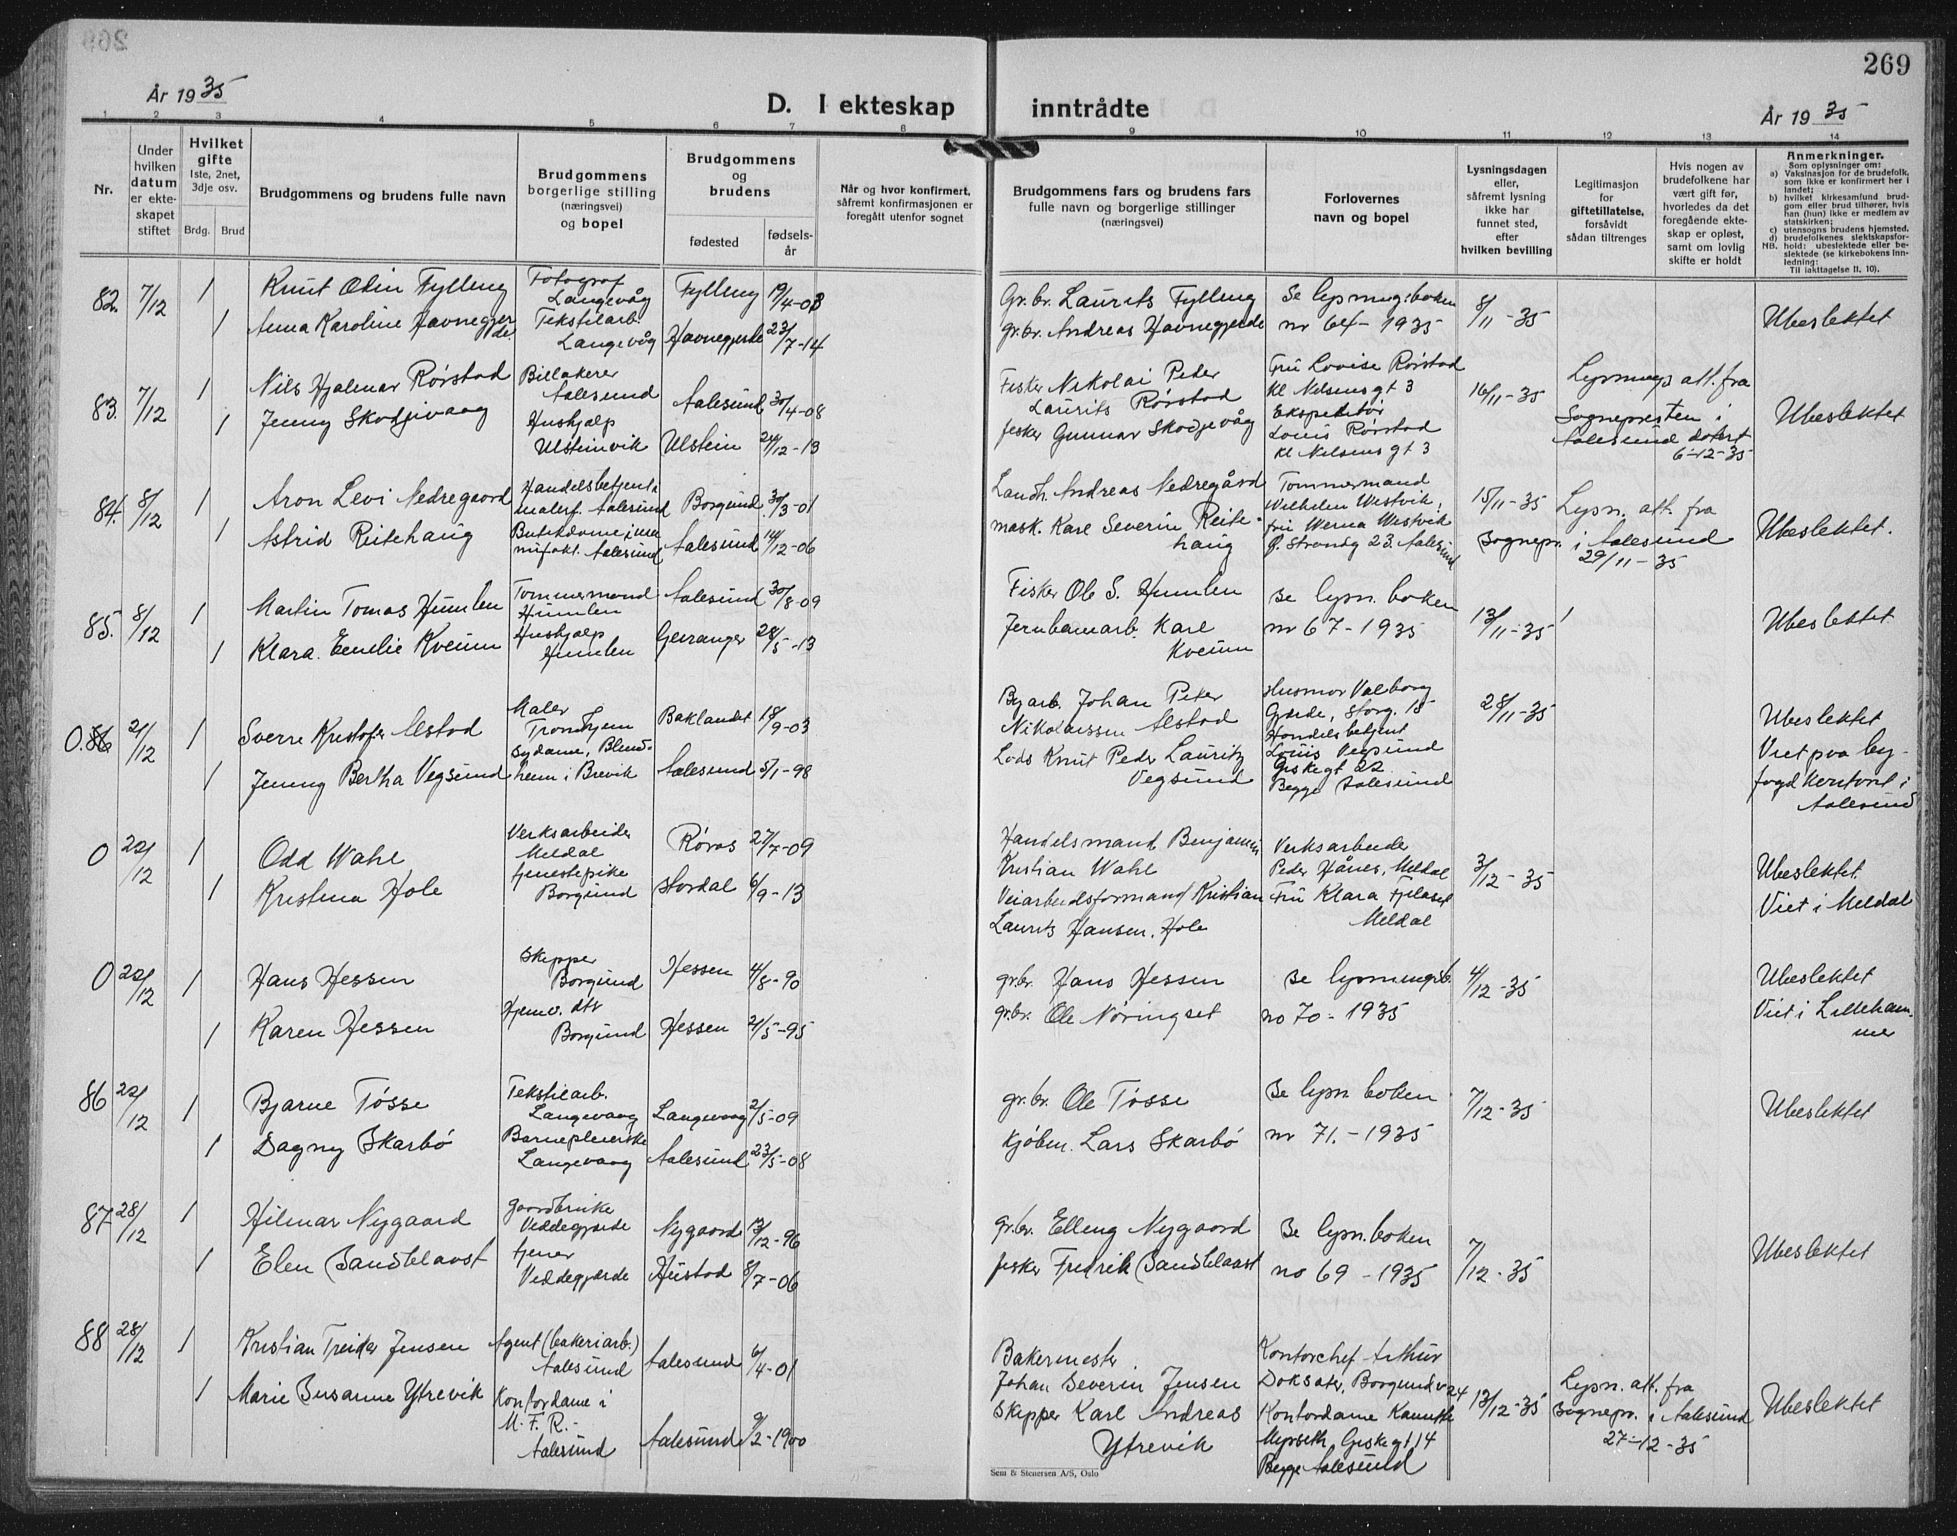 269
År 1935
D. I ekteskap inntrådte
År 1935
1 2 3 4 5 6 7 8 9 10 11 12 13 14
Nr.
Under hvilken datum er ekteskapet stiftet
Hvilket gifte
1ste, 2net, 3dje osv.
Brdg. Brud
Brudgommens og brudens fulle navn
Brudgommens borgerlige stilling (næringsvei) og bopel
Brudgommens og brudens
fødested
fødselsår
Når og hvor konfirmert, såfremt konfirmasjonen er foregått utenfor sognet
Brudgommens fars og brudens fars fulle navn og borgerlige stillinger (næringsvei)
Forlovernes navn og bopel
Lysningsdagen eller, såfremt lysning ikke har funnet sted, efter hvilken bevilling
Legitimasjon for giftetillatelse, forsåvidt sådan tiltrenges
Hvis nogen av brudefolkene har vært gift før, hvorledes da det foregående ekteskap er opløst, samt om lovlig skifte er holdt
Anmerkninger.
Som oplysninger om:
a) Vaksinasjon for de brudefolk, som ikke er konfirmert her i landet;
b) hvilket kirkesamfund brudgom eller brud tilhører, hvis han (hun) ikke er medlem av statskirken;
c) utensogns brudens hjemsted.
d) brudefolkenes slektskapsforhold: ubeslektede eller beslektede (se kirkebokens innledning:
NB.
Til iakttagelse II, 10).
82. 7/12 1 Knut Odin Fylling Fotograf Langevåg Fylling 19/4-03 Gr.br. Laurits Fylling Se lysningsboken 8/11-35 Ubeslektet
1 Anna Karoline Havnegjerde Tekstilarb. Langevåg Havnegjerde 23/7-14 gr.br. Andreas Havnegjerde nr 64-1935
83. 7/12 1 Nils Hjalmar Rørstad Billakerer Aalesund Aalesund 30/4-08 Fisker Nikolai Peter Laurits Rørstad Fru Lovise Rørstad Kl Nelsens gt 3 16/11-35 Lysnings att. fra Sognepresten i Aalesund datert 6-12-35 Ubeslektet
1 Jenny Skodjevaag Hushjelp Ulsteinvik Ulstein 24/12-13 fisker Gunnar Skodjevåg Ekspeditør Louis Rørstad Kl Nelsens gt 3
84. 8/12 1 Aron Levi Nedregaard Handelsbetjent i malerf. Aalesund Borgund 30/3-01 Landh. Andreas Nedregård Tømmermand Wilhelm Westvik, 15/11-35 Lysn. att. fra Sognepr. i Aalesund 29/11-35 Ubeslektet.
1 Astrid Reitehaug Butikdame i manufakt. Aalesund Aalesund 14/12-06 mask. Karl Severin Reitehaug fru Werna Westvik Ø. Strandg 23. Aalesund
85. 8/12 1 Martin Tomas Humlen Tømmermand Humlen Aalesund 30/8-09 Fisker Ole S. Humlen Se lysn. boken 13/11-35 Ubeslektet
1 Klara Emelie Kveum Hushjelp Humlen Geiranger 28/5-13 Jernbanearb. Karl Kveum nr 67-1935
0. 86 21/12 1 Sverre Kristofer Alstad Maler Trondhjem Baklandet 18/9-03 Byarb. Johan Peter Nikolaissen Alstad Husmor Valborg Gjerde, Storg. 15 28/11-35 Ubeslektet
1 Jenny Bertha Vegsund Sydame, Blindheim i Brevik Aalesund 5/1-98 Lods Knut Peder Lauritz Vegsund Handelsbetjent Louis Vegsund Giskegt 22 Begge Aalesund Viet paa byfogdkontoret i Aalesund
0 22/12 1 Odd Wahl Verksarbeider Meldal Røros 27/7-09 Handelsmand Benjamin Kristian Wahl Verksarbeider Peder Hånes, Meldal 3/12-35 Ubeslektet
1 Kristina Hole tjenestepike Borgund Stordal 6/9-13 Veiarbeidsformand Kristian Laurits Hansen Hole Fru Klara Fjelaset Meldal Viet i Meldal
0 22/12 1 Hans Hessen Skipper Borgund Hessen 4/8-90 gr.br. Hans Hessen Se lysningsb. 4/12-35 Ubeslektet
1 Karen Hessen Hjemv. dtr Borgund Hessen 21/5-95 gr.br. Ole Nøringset no 70-1935 Viet i Lillehammer
86 22/12 1 Bjarne Tøsse Tekstilarb. Langevaag Langevaag 2/5-09 gr.br. Ole Tøsse Se lysn. boken 7/12-35 Ubeslektet
1 Dagny Skarbø Barnepleierske Langevaag Aalesund 23/5-08 Kjøbm. Lars Skarbø nr 71.-1935
87 28/12 1 Hilmar Nygaard gaardbruker Veddegjerde Nygaard 13/12-96 gr.br. Elling Nygaard Se lysn. boken 7/12-35 Ubeslektet
1 Elen Sandblaast tjener Veddegjerde Hustad 8/7-06 fisker Fredrik Sandblaast no 69-1935
88 28/12 1 Kristian Treider Jensen Agent (bakeriarb.) Aalesund Aalesund 6/4-01 Bakermester Johan Severin Jensen Kontorchef Arthur Doksater, Borgundv 24 13/12-35 Lysn. att. fra Sognepr. i Aalesund 27-12-35 Ubeslektet
1 Marie Susanne Ytrevik Kontordame i M.F.R. Aalesund Aalesund 9/2-1900 Skipper Karl Andreas Ytrevik Kontordame Myrseth, Giskegt 14 Begge Aalesund
Sem & Stenersen A/S, Oslo